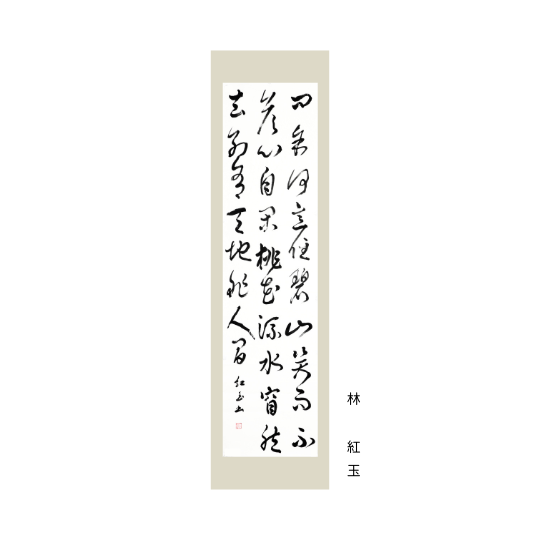 問余何意住碧山笑而不
答心自閑桃花流水窅然
去別有天地非人間 紅玉書
林 紅玉